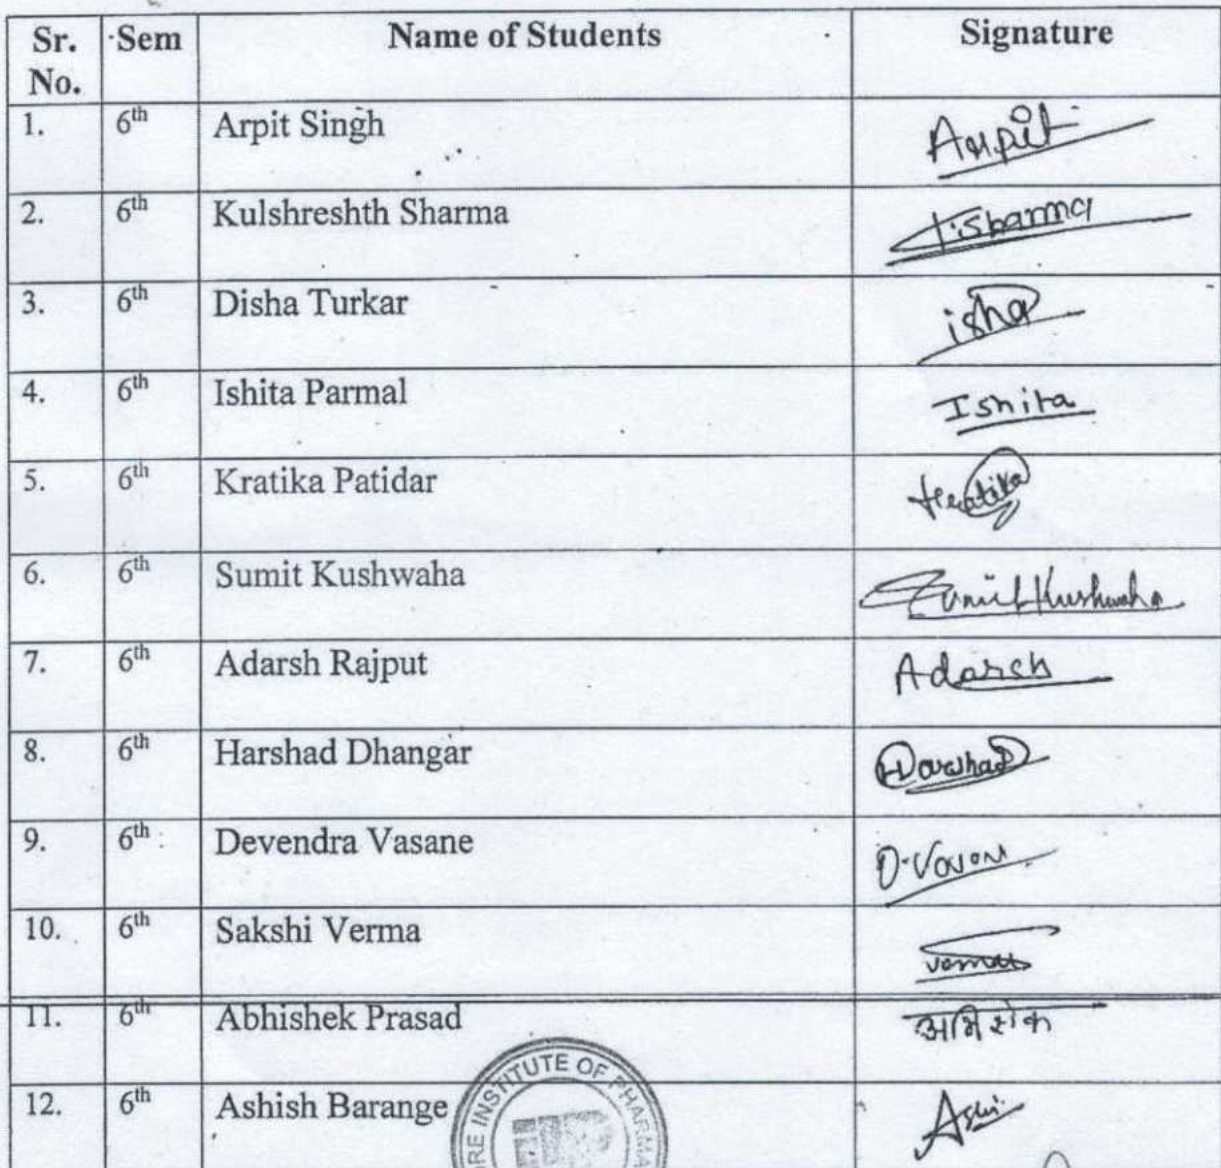 Sr. No. Sem Name of Students Signature
1. 6th Arpit Singh Arpit
2. 6th Kulshreshth Sharma Sharma
3. 6th Disha Turkar isha
4. 6th Ishita Parmal Ishita
5. 6th Kratika Patidar Kratika
6. 6th Sumit Kushwaha Sumit Kushwaha
7. 6th Adarsh Rajput Adarsh
8. 6th Harshad Dhangar Harshad
9. 6th Devendra Vasane
10. 6th Sakshi Verma
11. 6th Abhishek Prasad
12. 6th Ashish Barange
INSTITUTE OF